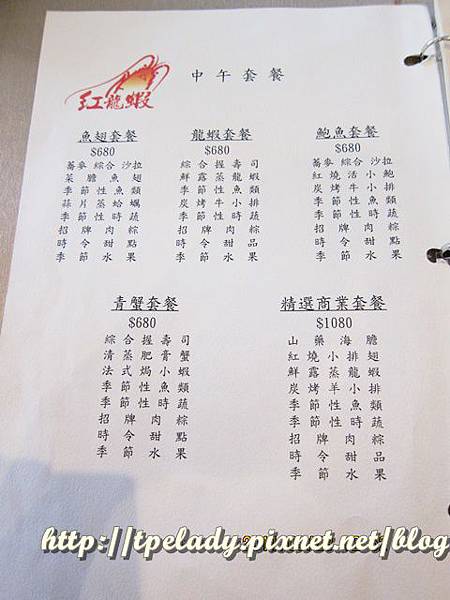 紅龍蝦
中午套餐
魚翅套餐
$680
蕎麥綜合沙拉
菜膽魚翅
季節性魚類
蒜片蒸蛤蠣
季節性時蔬
招牌肉粽
時令甜點
季節水果
龍蝦套餐
$680
綜合握壽司
鮮露蒸龍蝦
季節性魚類
炭烤牛小排
季節性時蔬
招牌肉粽
時令甜品
季節水果
鮑魚套餐
$680
蕎麥綜合沙拉
紅燒活小鮑
炭烤牛小排
季節性魚類
季節性時蔬
招牌肉粽
時令甜點
季節水果
青蟹套餐
$680
綜合握壽司
清蒸肥膏蟹
法式焗小蝦
季節性魚類
季節性時蔬
招牌肉粽
時令甜點
季節水果
精選商業套餐
$1080
山藥海膽
紅燒小排翅
鮮露蒸龍蝦
炭烤羊小排
季節性魚類
季節性時蔬
招牌肉粽
時令甜品
季節水果
http://tpelady.pixnet.net/blog